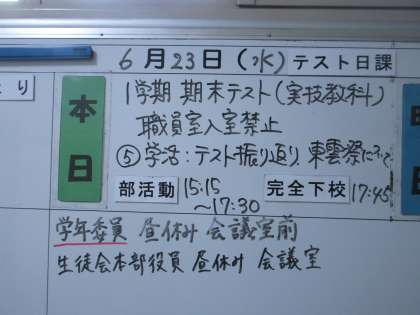 6月23日(水)テスト日課
より
本日
1学期 期末テスト(実技教科)
職員室入室禁止
⑤学活:テスト振り返り、東雲祭について
部活動 15:15 ～17:30
完全下校 17:45
学年委員 昼休み 会議室前
生徒会本部役員 昼休み 会議室